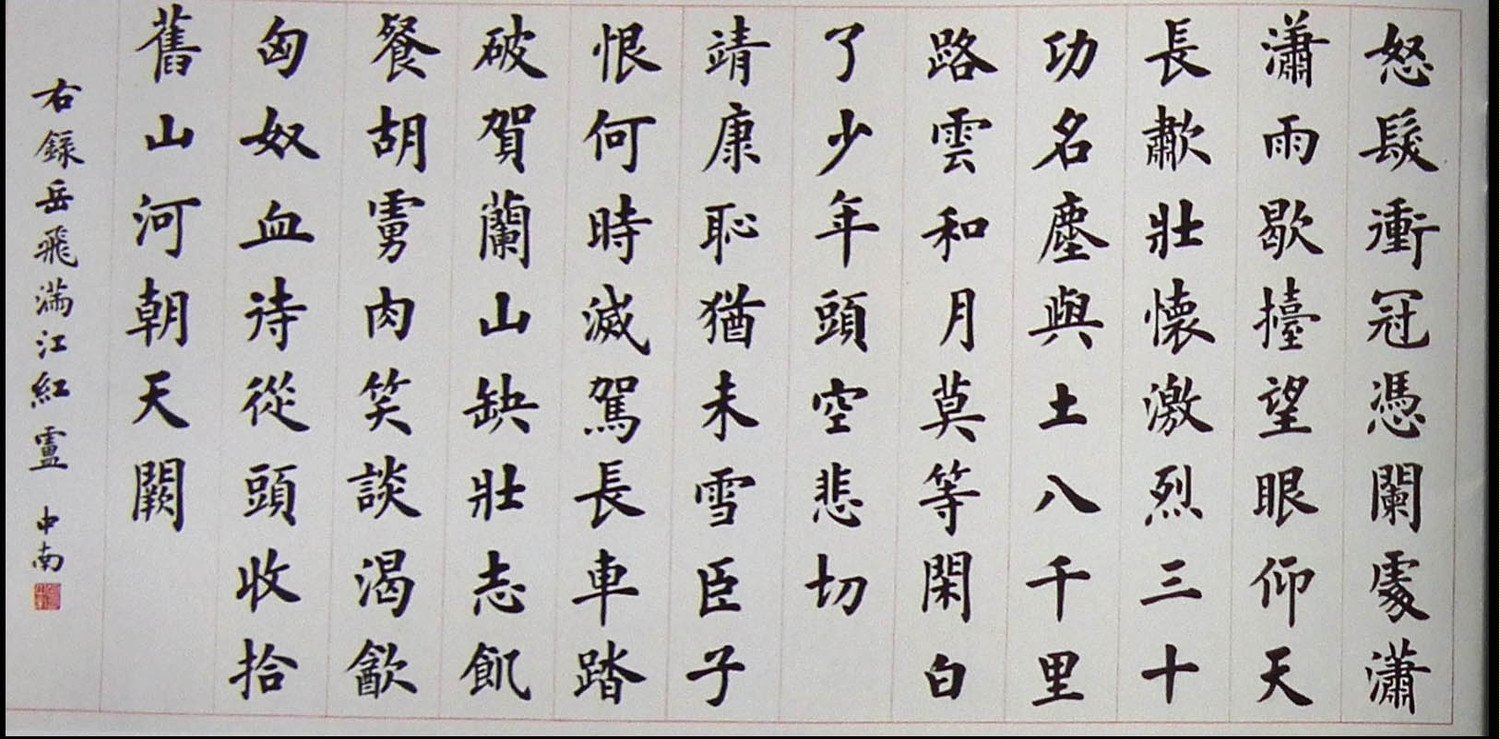 怒髮衝冠憑闌處瀟
瀟雨歇擡望眼仰天
長歗壯懷激烈三十
功名塵與土八千里
路雲和月莫等閑白
了少年頭空悲切
靖康恥猶未雪臣子
恨何時滅駕長車踏
破賀蘭山缺壯志飢
餐胡虜肉笑談渴飲
匈奴血待從頭收拾
舊山河朝天闕
右錄岳飛滿江紅 盧中南